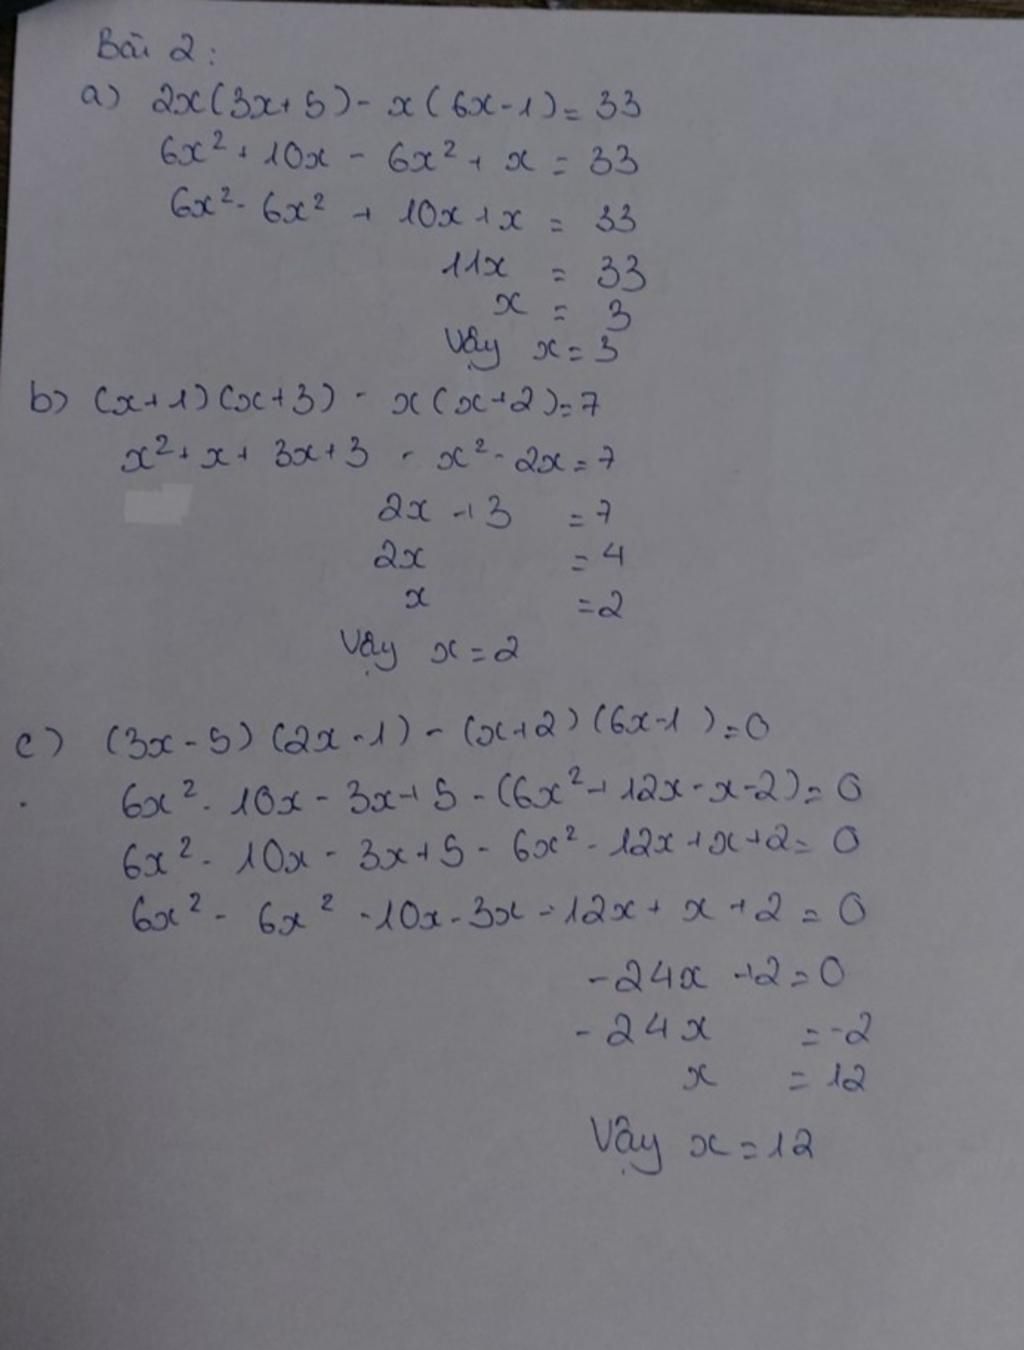 Bài 2:
a) 2x(3x+5) - x(6x-1) = 33
6x² + 10x - 6x² + x = 33
6x² - 6x² + 10x + x = 33
11x = 33
x = 3
Vậy x = 3
b) (x+1)(x+3) - x(x+2) = 7
x² + x + 3x + 3 - x² - 2x = 7
2x + 3 = 7
2x = 4
x = 2
Vậy x = 2
c) (3x - 5)(2x - 1) - (x+2)(6x-1) = 0
6x² - 10x - 3x + 5 - (6x² + 12x - x - 2) = 0
6x² - 10x - 3x + 5 - 6x² - 12x + x + 2 = 0
6x² - 6x² - 10x - 3x - 12x + x + 2 = 0
-24x + 2 = 0
-24x = -2
x = 12
Vậy x = 12